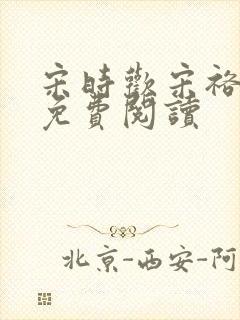 宋時歡宋裕
免費閱讀
北京-西安-阿